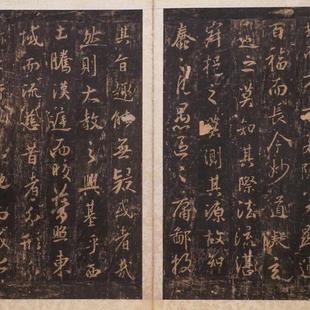 百福而長今妙道凝玄
遵之莫知其際法流湛
寂挹之莫測其源故知
蠢々凡愚區々庸鄙投
其旨趣能無疑或者哉
然則大教之興基乎西
土騰漢庭而皎夢照東
域而流慈昔者分形